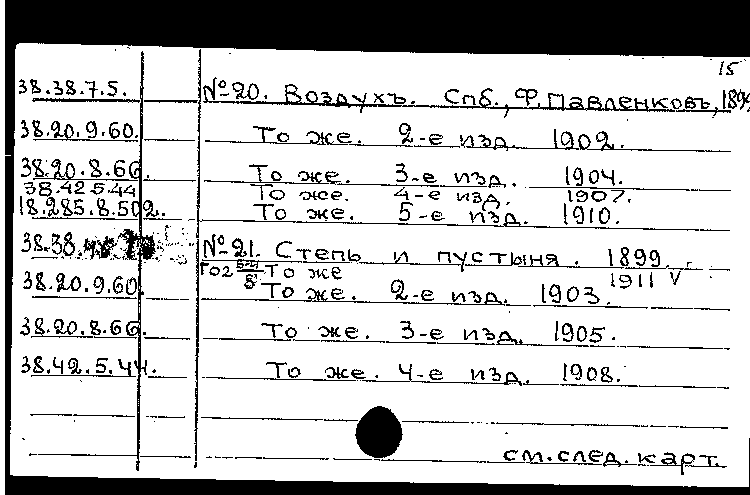 15
38.38.7.5. №20. Воздухъ. Спб., Ф. Павленковъ, 189
38.20.9.60. То же. 2-е изд. 1902.
38.20.8.66. То же. 3-е изд. 1904.
38.42.5.44 То же. 4-е изд. 1907.
18.285.8.502. То же. 5-е изд. 1910.
38.38. №21. Степь и пустыня. 1899.
То же 1911 V
38.20.9.60. То же. 2-е изд. 1903.
38.20.8.66. То же. 3-е изд. 1905.
38.42.5.44. То же. 4-е изд. 1908.
см. след. карт.